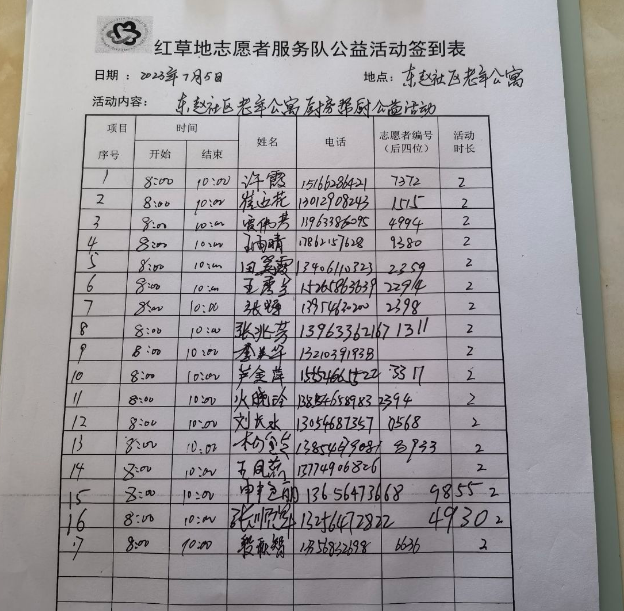 红草地志愿者服务队公益活动签到表
日期：2023年7月5日 地点：东赵社区老年公寓
活动内容：东赵社区老年公寓厨房帮厨公益活动
项目 时间 姓名 电话 志愿者编号 活动
序号 开始 结束 (后四位) 时长
1 8:00 10:00 许霞 15166286421 7372 2
2 8:00 10:00 13012908243 1515 2
3 8:00 10:00 4994 2
4 8:00 10:00 王雨晴 17862157628 9380 2
5 8:00 10:00 田美霞 13406110323 2359 2
6 8:00 10:00 15265863639 2294 2
7 8:00 10:00 2398 2
8 8:00 10:00 张兆芳 13963362167 1311 2
9 8:00 10:00 2
10 8:00 10:00 2
11 8:00 10:00 2394 2
12 8:00 10:00 刘长水 13054687357 0568 2
13 8:00 10:00 8933 2
14 8:00 10:00 13774906826 2
15 8:00 10:00 13656473668 9855 2
16 8:00 10:00 13256472822 4930 2
17 8:00 10:00 6636 2